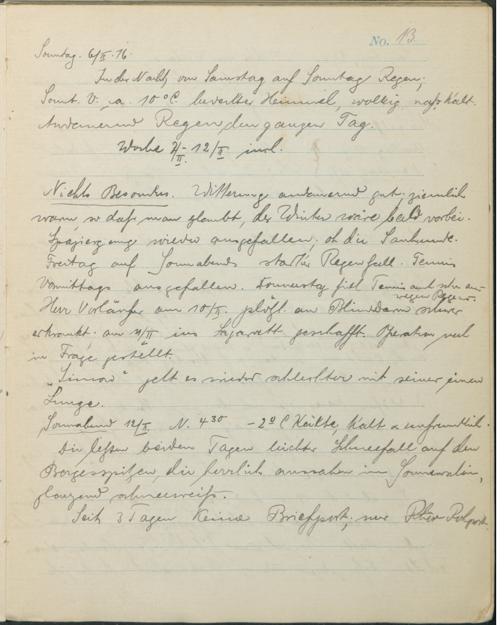 No. 13
Sonntag. 6/II.16.
In der Nacht von Samstag auf Sonntag Regen;
Sonnt. V. a. 10°C. bewölkter Himmel, wolkig, naßkalt.
Andauernd Regen den ganzen Tag.
Woche 7/II - 12/II incl.
Nichts Besonderes. Witterung andauernd gut, ziemlich
warm, so daß man glaubt, der Winter wäre bald vorbei.
Spaziergänge wieder ausgefallen, ob die
Freitag auf Sonnabend starker Regenfall. Tennis
Vormittags ausgefallen. Donnerstag fiel Tennis auch
wegen Regens.
Herr Vorläufer am 10/II. plötzl. an Blinddarm schwer
erkrankt. am 11/II ins Lazarett geschafft. Operation noch
in Frage gestellt.
geht es wieder schlechter mit seiner einen
Lunge.
Sonnabend 12/II N. 4³⁰ -2° C Kälte, Kalt & unfreundlich.
Die letzten beiden Tagen leichter Schneefall auf den
Bergesspitzen, die herrlich aussahen im Sonnenschein,
glänzend schneeweiß.
Seit 3 Tagen keine Briefpost; nur